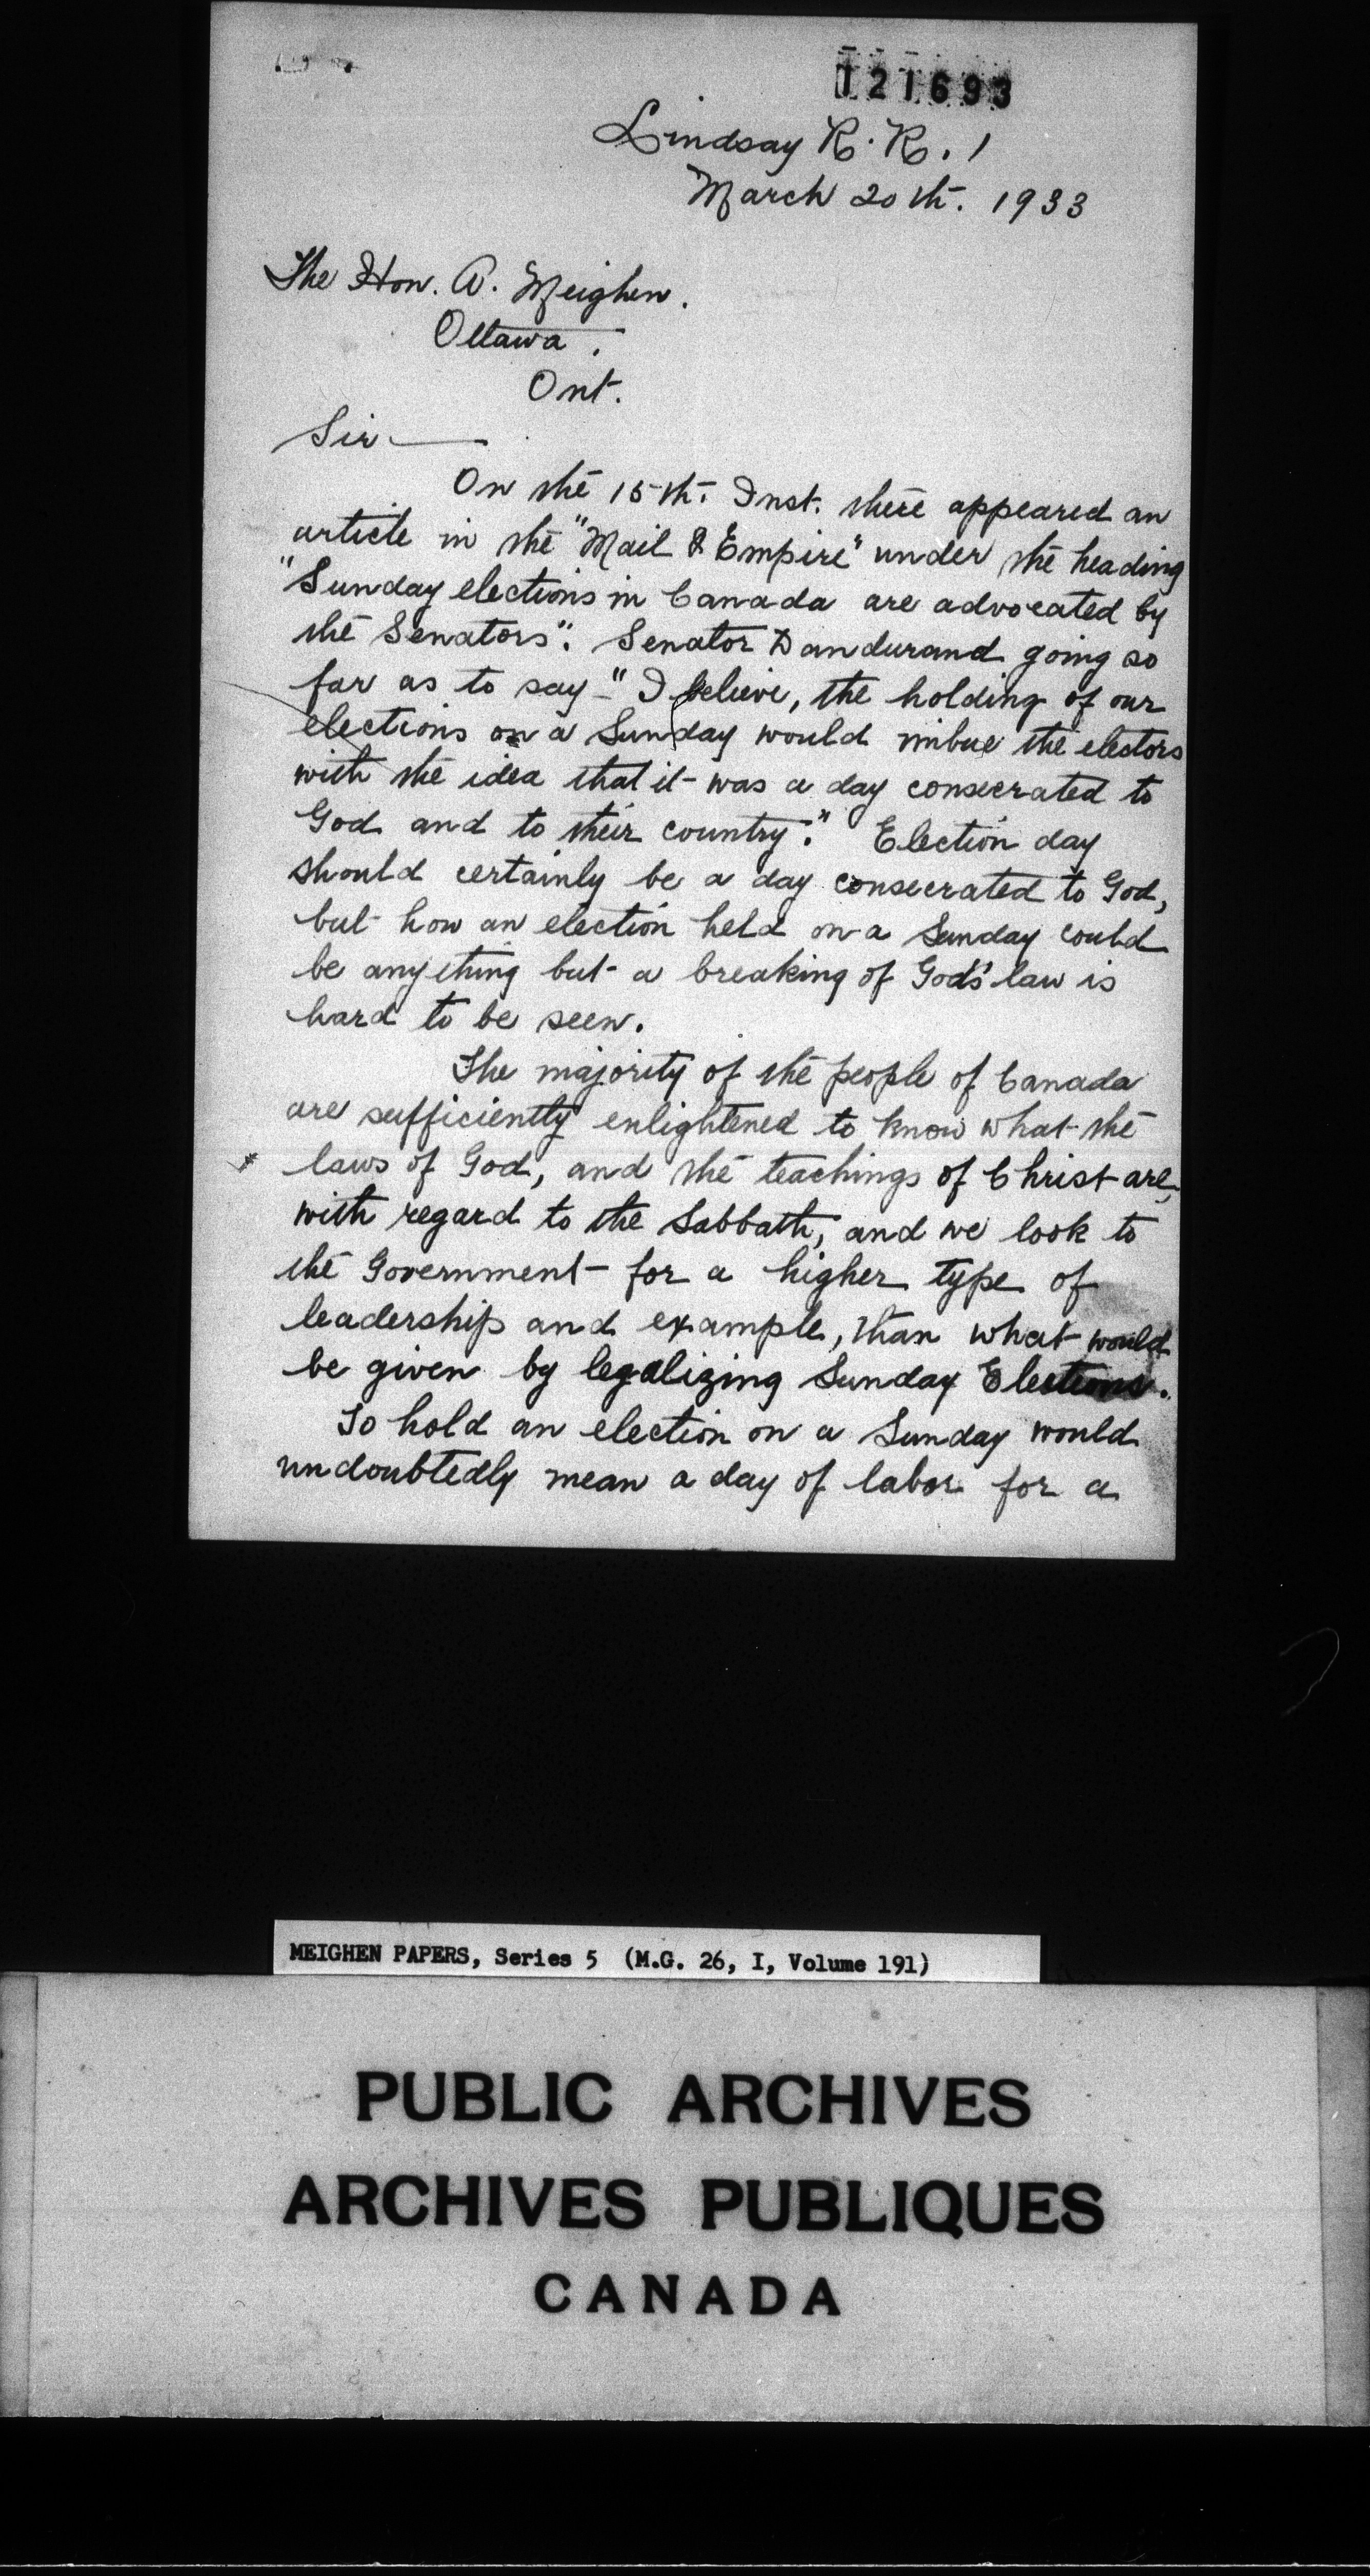 121693
Lindsay R. R. 1
March 20th. 1933
The Hon. A. Meighen.
Ottawa.
Ont.
Sir —
On the 15th. Inst. there appeared an
article in the "Mail & Empire" under the heading
"Sunday elections in Canada are advocated by
the Senators". Senator Dandurand going so
far as to say – "I believe, the holding of our
elections on a Sunday would imbue the electors
with the idea that it was a day consecrated to
God and to their country." Election day
should certainly be a day consecrated to God,
but how an election held on a Sunday could
be anything but a breaking of God's law is
hard to be seen.
The majority of the people of Canada
are sufficiently enlightened to know what the
laws of God, and the teachings of Christ are,
with regard to the Sabbath, and we look to
the Government for a higher type of
leadership and example, than what would
be given by legalizing Sunday Elections.
To hold an election on a Sunday would
undoubtedly mean a day of labor for a
MEIGHEN PAPERS, Series 5 (M.G. 26, I, Volume 191)
PUBLIC ARCHIVES
ARCHIVES PUBLIQUES
CANADA